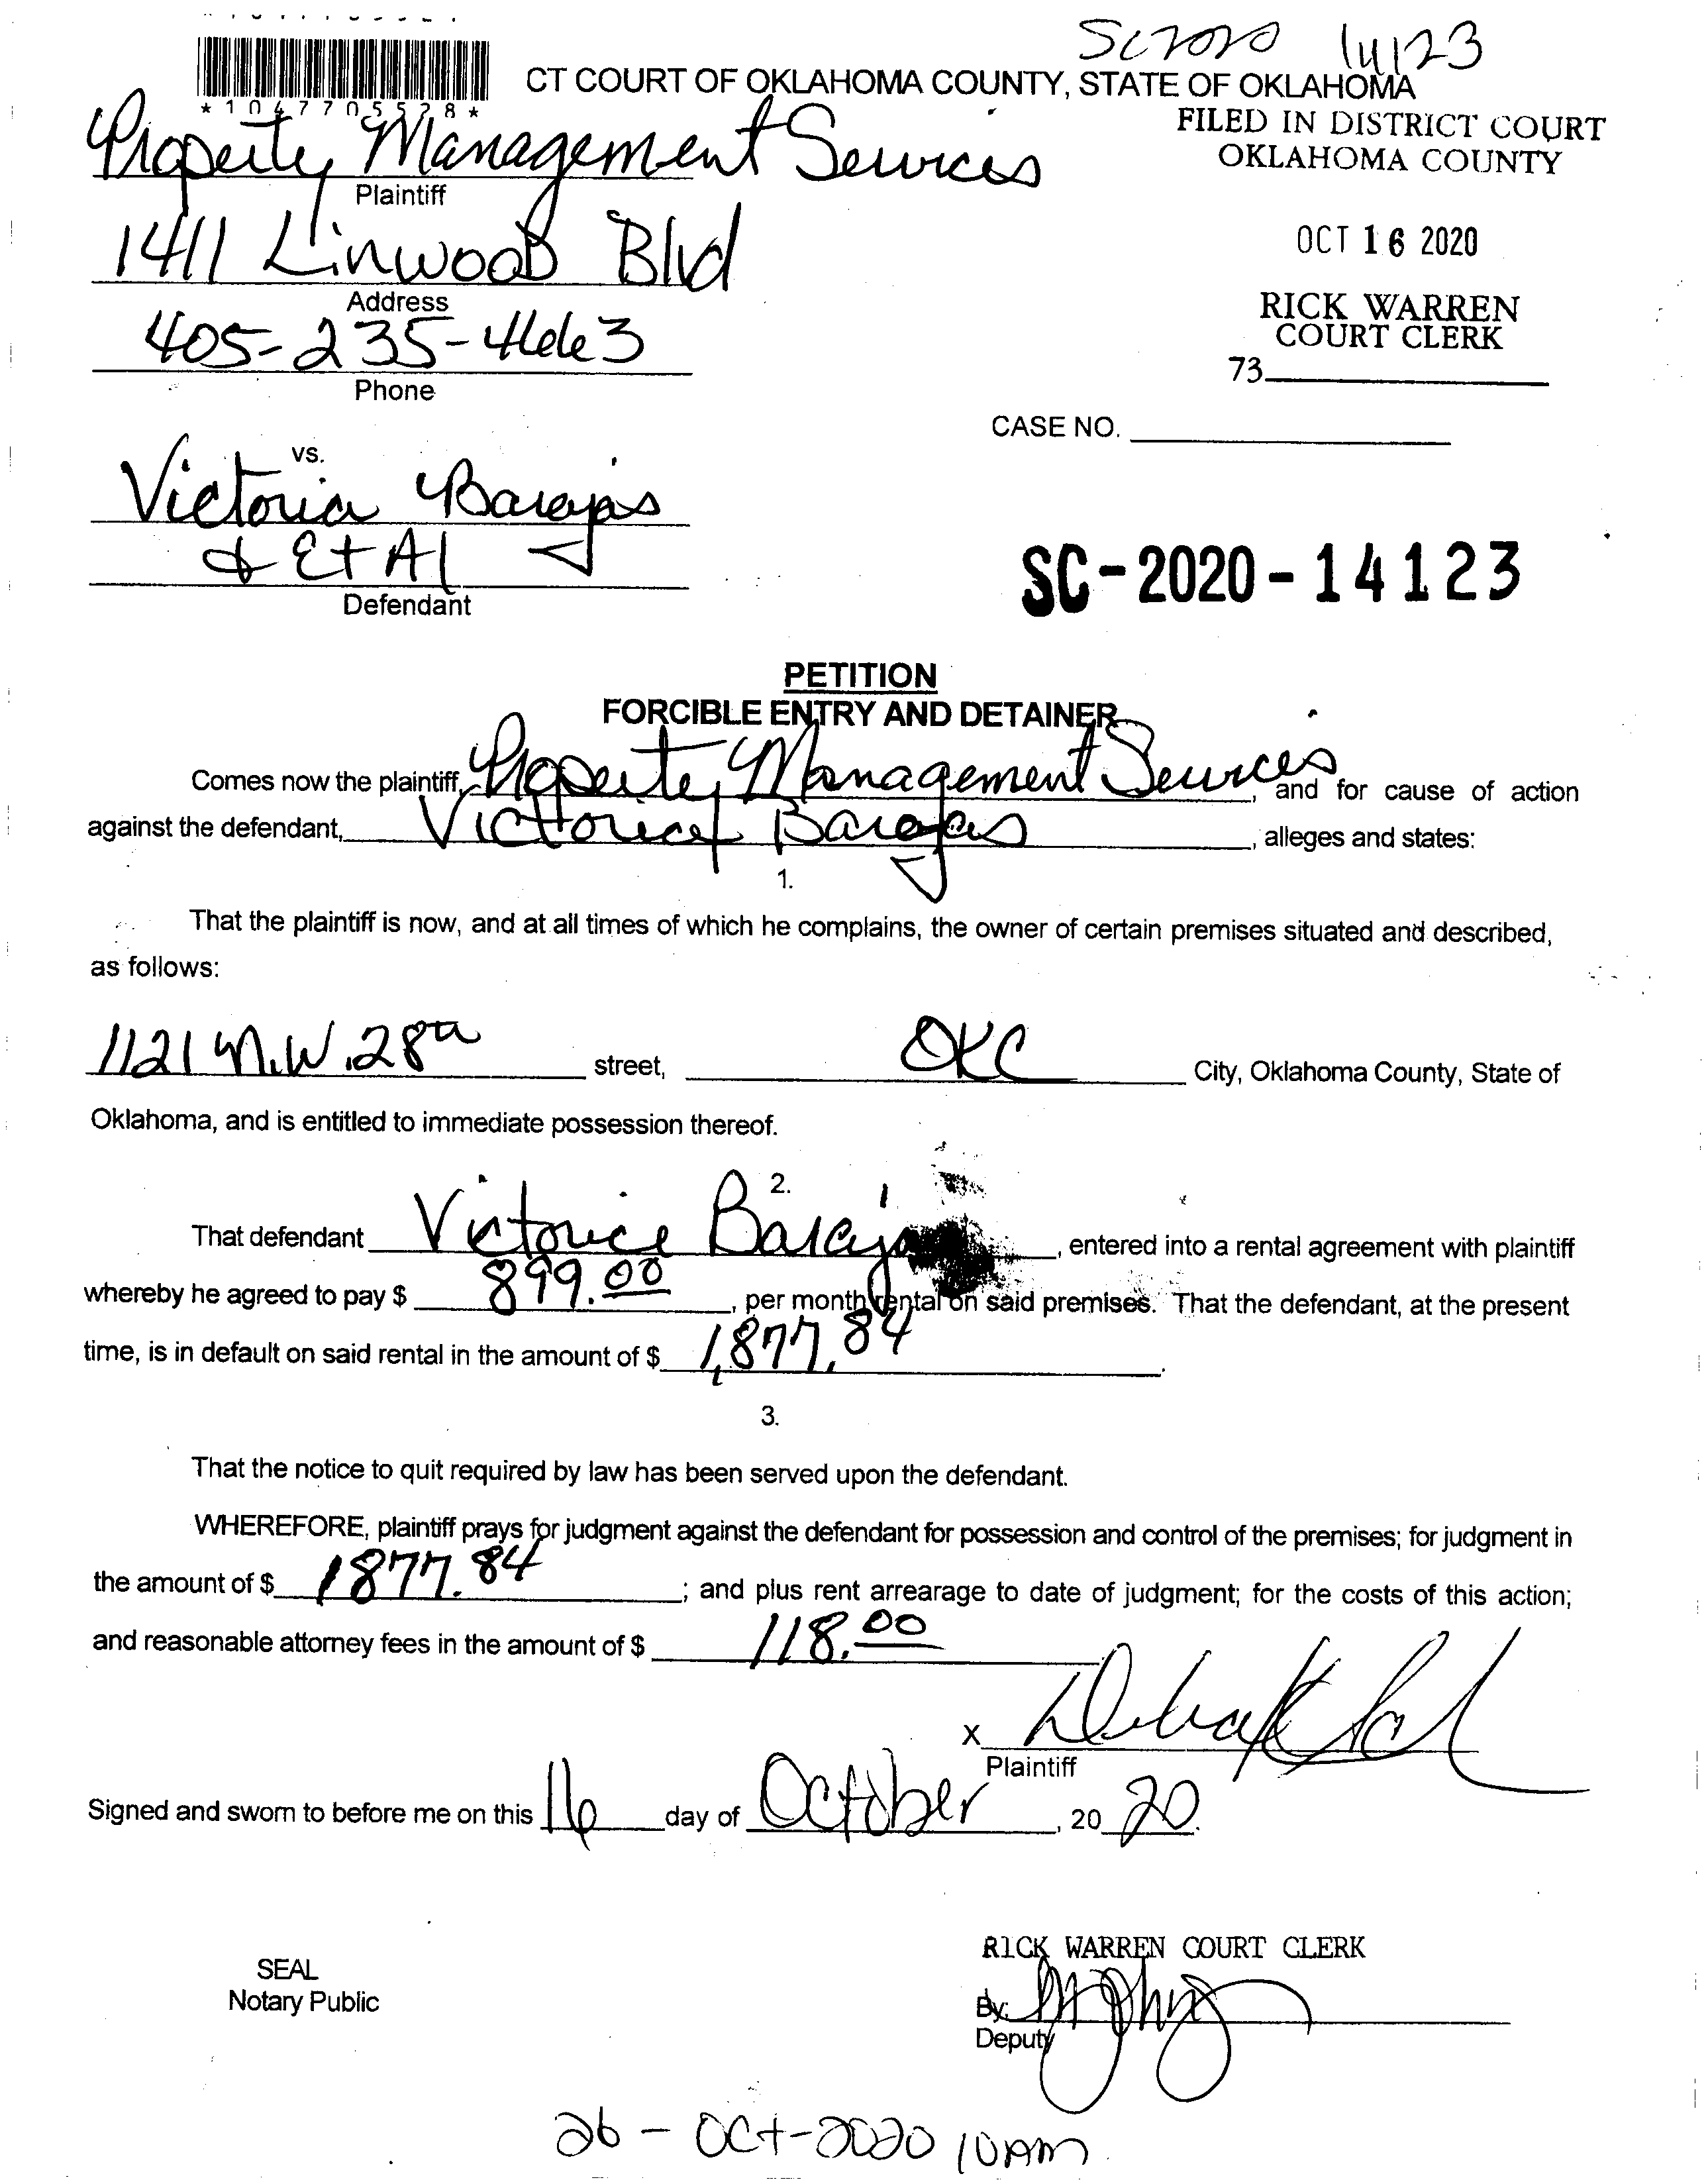 SC2020 14123
CT COURT OF OKLAHOMA COUNTY, STATE OF OKLAHOMA
*1047705528*
FILED IN DISTRICT COURT
OKLAHOMA COUNTY
Property Management Services
Plaintiff
OCT 16 2020
1411 Linwood Blvd
Address
RICK WARREN
COURT CLERK
405-235-4663
Phone
73
CASE NO.
vs.
Victoria Barajas
& Et Al
Defendant
SC-2020-14123
PETITION
FORCIBLE ENTRY AND DETAINER
Comes now the plaintiff, Property Management Services, and for cause of action
against the defendant, Victoria Barajas, alleges and states:
1.
That the plaintiff is now, and at all times of which he complains, the owner of certain premises situated and described,
as follows:
1121 N.W. 28th street, OKC City, Oklahoma County, State of
Oklahoma, and is entitled to immediate possession thereof.
2.
That defendant Victoria Baraja, entered into a rental agreement with plaintiff
whereby he agreed to pay $ 899.00, per month rental on said premises. That the defendant, at the present
time, is in default on said rental in the amount of $ 1,877.84.
3.
That the notice to quit required by law has been served upon the defendant.
WHEREFORE, plaintiff prays for judgment against the defendant for possession and control of the premises; for judgment in
the amount of $ 1877.84; and plus rent arrearage to date of judgment; for the costs of this action;
and reasonable attorney fees in the amount of $ 118.00
X
Plaintiff
Signed and sworn to before me on this 16 day of October, 2020.
RICK WARREN COURT CLERK
SEAL
Notary Public
By:
Deputy
26-Oct-2020 10AM